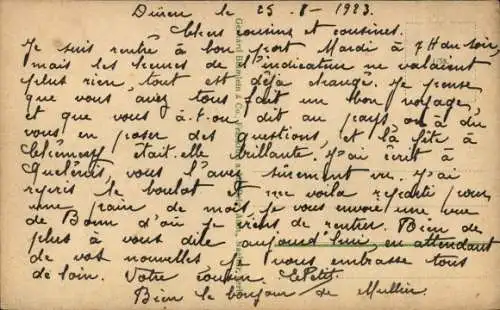 Düren le 25-8-1923.
Chers cousins et cousines.
Je suis rentré à bon port Mardi à 7 H du soir,
mais les heures de l'indicateur ne valaient
plus rien, tout est déjà changé. Je pense
que vous avez tous fait un bon voyage
et que vous a-t-on dit au pays, on a dû
vous en poser des questions, et la fête à
était-elle brillante. J'ai écrit à
vous l'avez surement vu. J'ai
repris le boulot et me voila reparti pour
une paire de mois, je vous envoie une vue
de Bonn d'où je viens de rentrer. Rien de
plus à vous dire aujourd'hui, en attendant
de vos nouvelles je vous embrasse tous
de loin. Votre cousin. Le Petit.
Bien le bonjour de